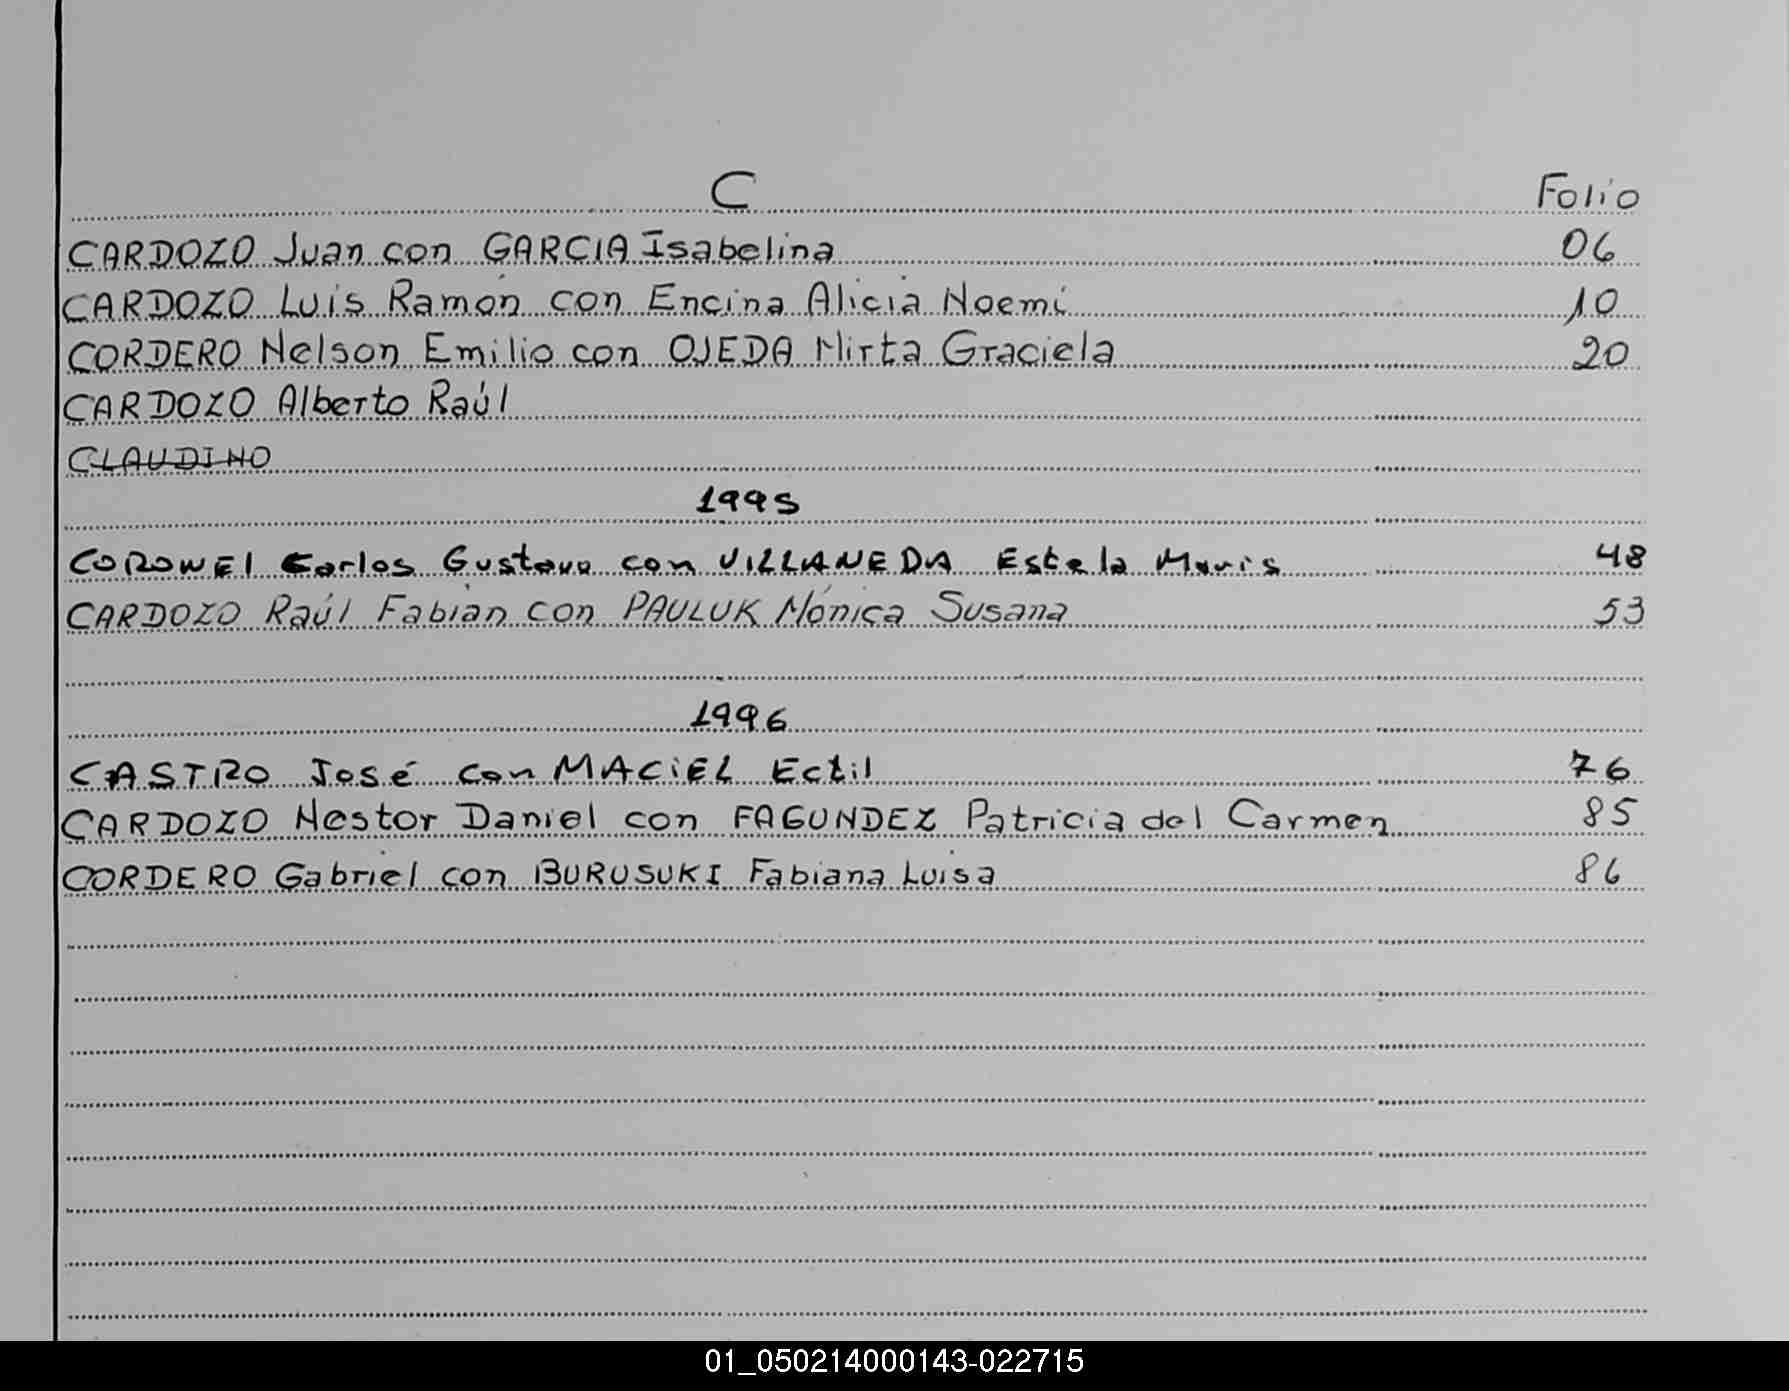 C Folio
CARDOZO Juan con GARCIA Isabelina 06
CARDOZO Luis Ramón con Encina Alicia Noemí 10
CORDERO Nelson Emilio con OJEDA Mirta Graciela 20
CARDOZO Alberto Raúl
CLAUDINO
1995
CORONEL Carlos Gustavo con VILLANEDA Estela Maris 48
CARDOZO Raúl Fabián con PAULUK Mónica Susana 53
1996
CASTRO José con MACIEL Ectil 76
CARDOZO Nestor Daniel con FAGUNDEZ Patricia del Carmen 85
CORDERO Gabriel con BURUSUKI Fabiana Luisa 86
01_050214000143-022715